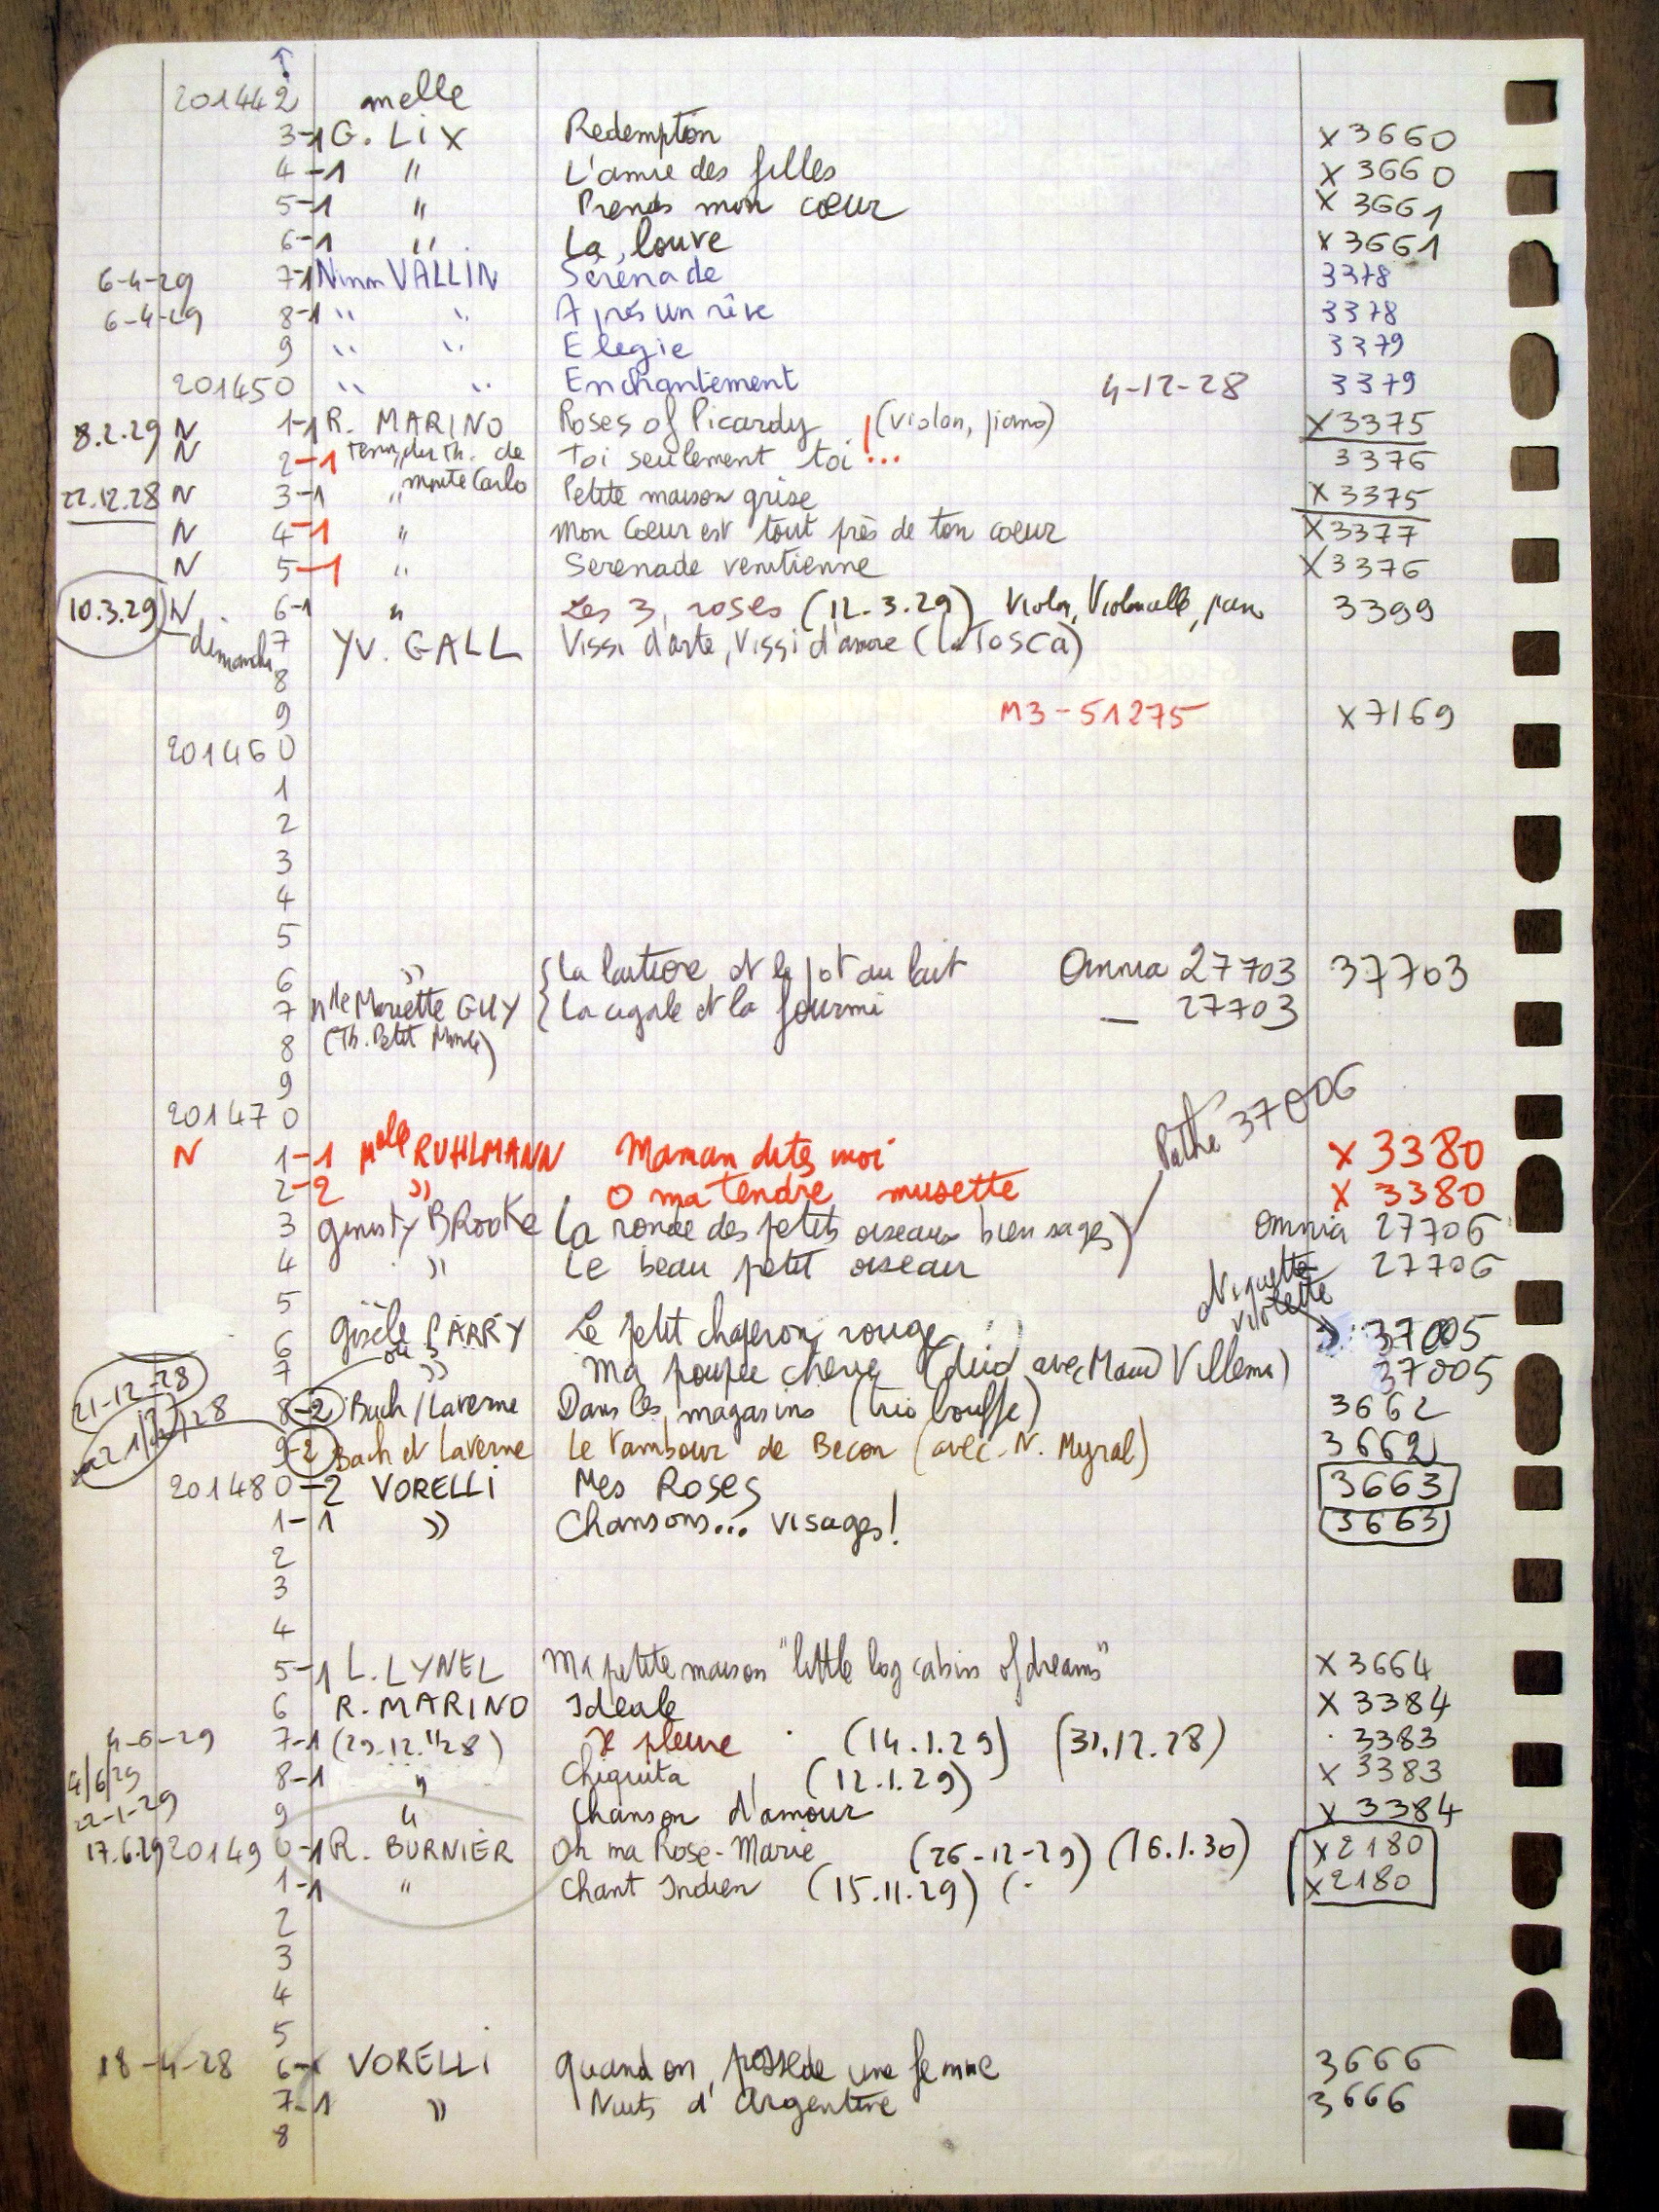 201442 melle
3-1 G. LIX Redemption X 3660
4-1 " L'amie des filles X 3660
5-1 " Prends mon cœur X 3661
6-1 " La louve X 3661
6-4-29 7-1 Ninon VALLIN Sérénade 3378
6-4-29 8-1 " " Après un rêve 3378
9 " " Elegie 3379
201450 " " Enchantement 4-12-28 3379
8.2.29 N 1-1 R. MARINO Roses of Picardy (violon, piano) X 3375
N 2-1 Tenor du Th. de Toi seulement toi !... 3376
22.12.28 N 3-1 " monte Carlo Petite maison grise X 3375
N 4-1 " Mon Coeur est tout près de ton coeur X 3377
N 5-1 " Serenade venitienne X 3376
10.3.29 N 6-1 " Les 3 roses (12.3.29) Violon, Violoncelle, piano 3399
dimanche 7 YV. GALL Vissi d'arte, Vissi d'amore (La TOSCA)
8
9 M3-51275 X 7169
201460
1
2
3
4
5
6 " La laitiere et le pot au lait Omnia 27703 37703
7 Mlle Mariette GUY La cigale et la fourmi — 27703
8 (Th. Petit Monde)
9
201470
Pathé 37006
N 1-1 Melle RUHLMANN Maman dites moi X 3380
2-2 " O ma tendre musette X 3380
3 BRooKe La ronde des petits oiseaux bien sages Omnia 27706
4 " Le beau petit oiseau 27706
5
violette
6 Gisèle PARRY Le petit chaperon rouge 37005
7 ou " Ma poupée cherie (duo avec Maud Villema) 37005
21-12-28 8-2 Bach/Laverne Dans les magasins (trio bouffe) 3662
21/12/28 9-2 Bach et Laverne Le Tambour de Becon (avec N. Myral) 3662
201480-2 VORELLI Mes Roses 3663
1-1 " Chansons... visages! 3663
2
3
4
5-1 L. LYNEL Ma petite maison "little log cabin of dreams" X 3664
6 R. MARINO Ideale X 3384
4-6-29 7-1 (29.12.28) Il pleure (14.1.29) (31.12.28) 3383
4/6/29 8-1 " Chiquita (12.1.29) X 3383
22-1-29 9 " Chanson d'amour X 3384
17.6.29 201490-1 R. BURNIER Oh ma Rose-Marie (26-12-29) (16.1.30) X 2180
1-1 " Chant Indien (15.11.29) X 2180
2
3
4
5
18-4-28 6-1 VORELLI Quand on possede une femme 3666
7-1 " Nuits d'Argentine 3666
8